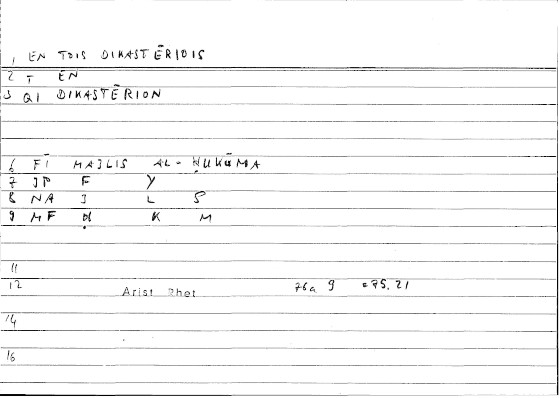 1 EN TOIS DIKASTĒRIOIS
2 T EN
3 QI DIKASTĒRION
6 FĪ MAJLIS AL-ḤUKŪMA
7 JP F Y
8 NA J L S
9 MF Ḥ K M
11
12 Arist Rhet 76a 9 =75,21
14
16